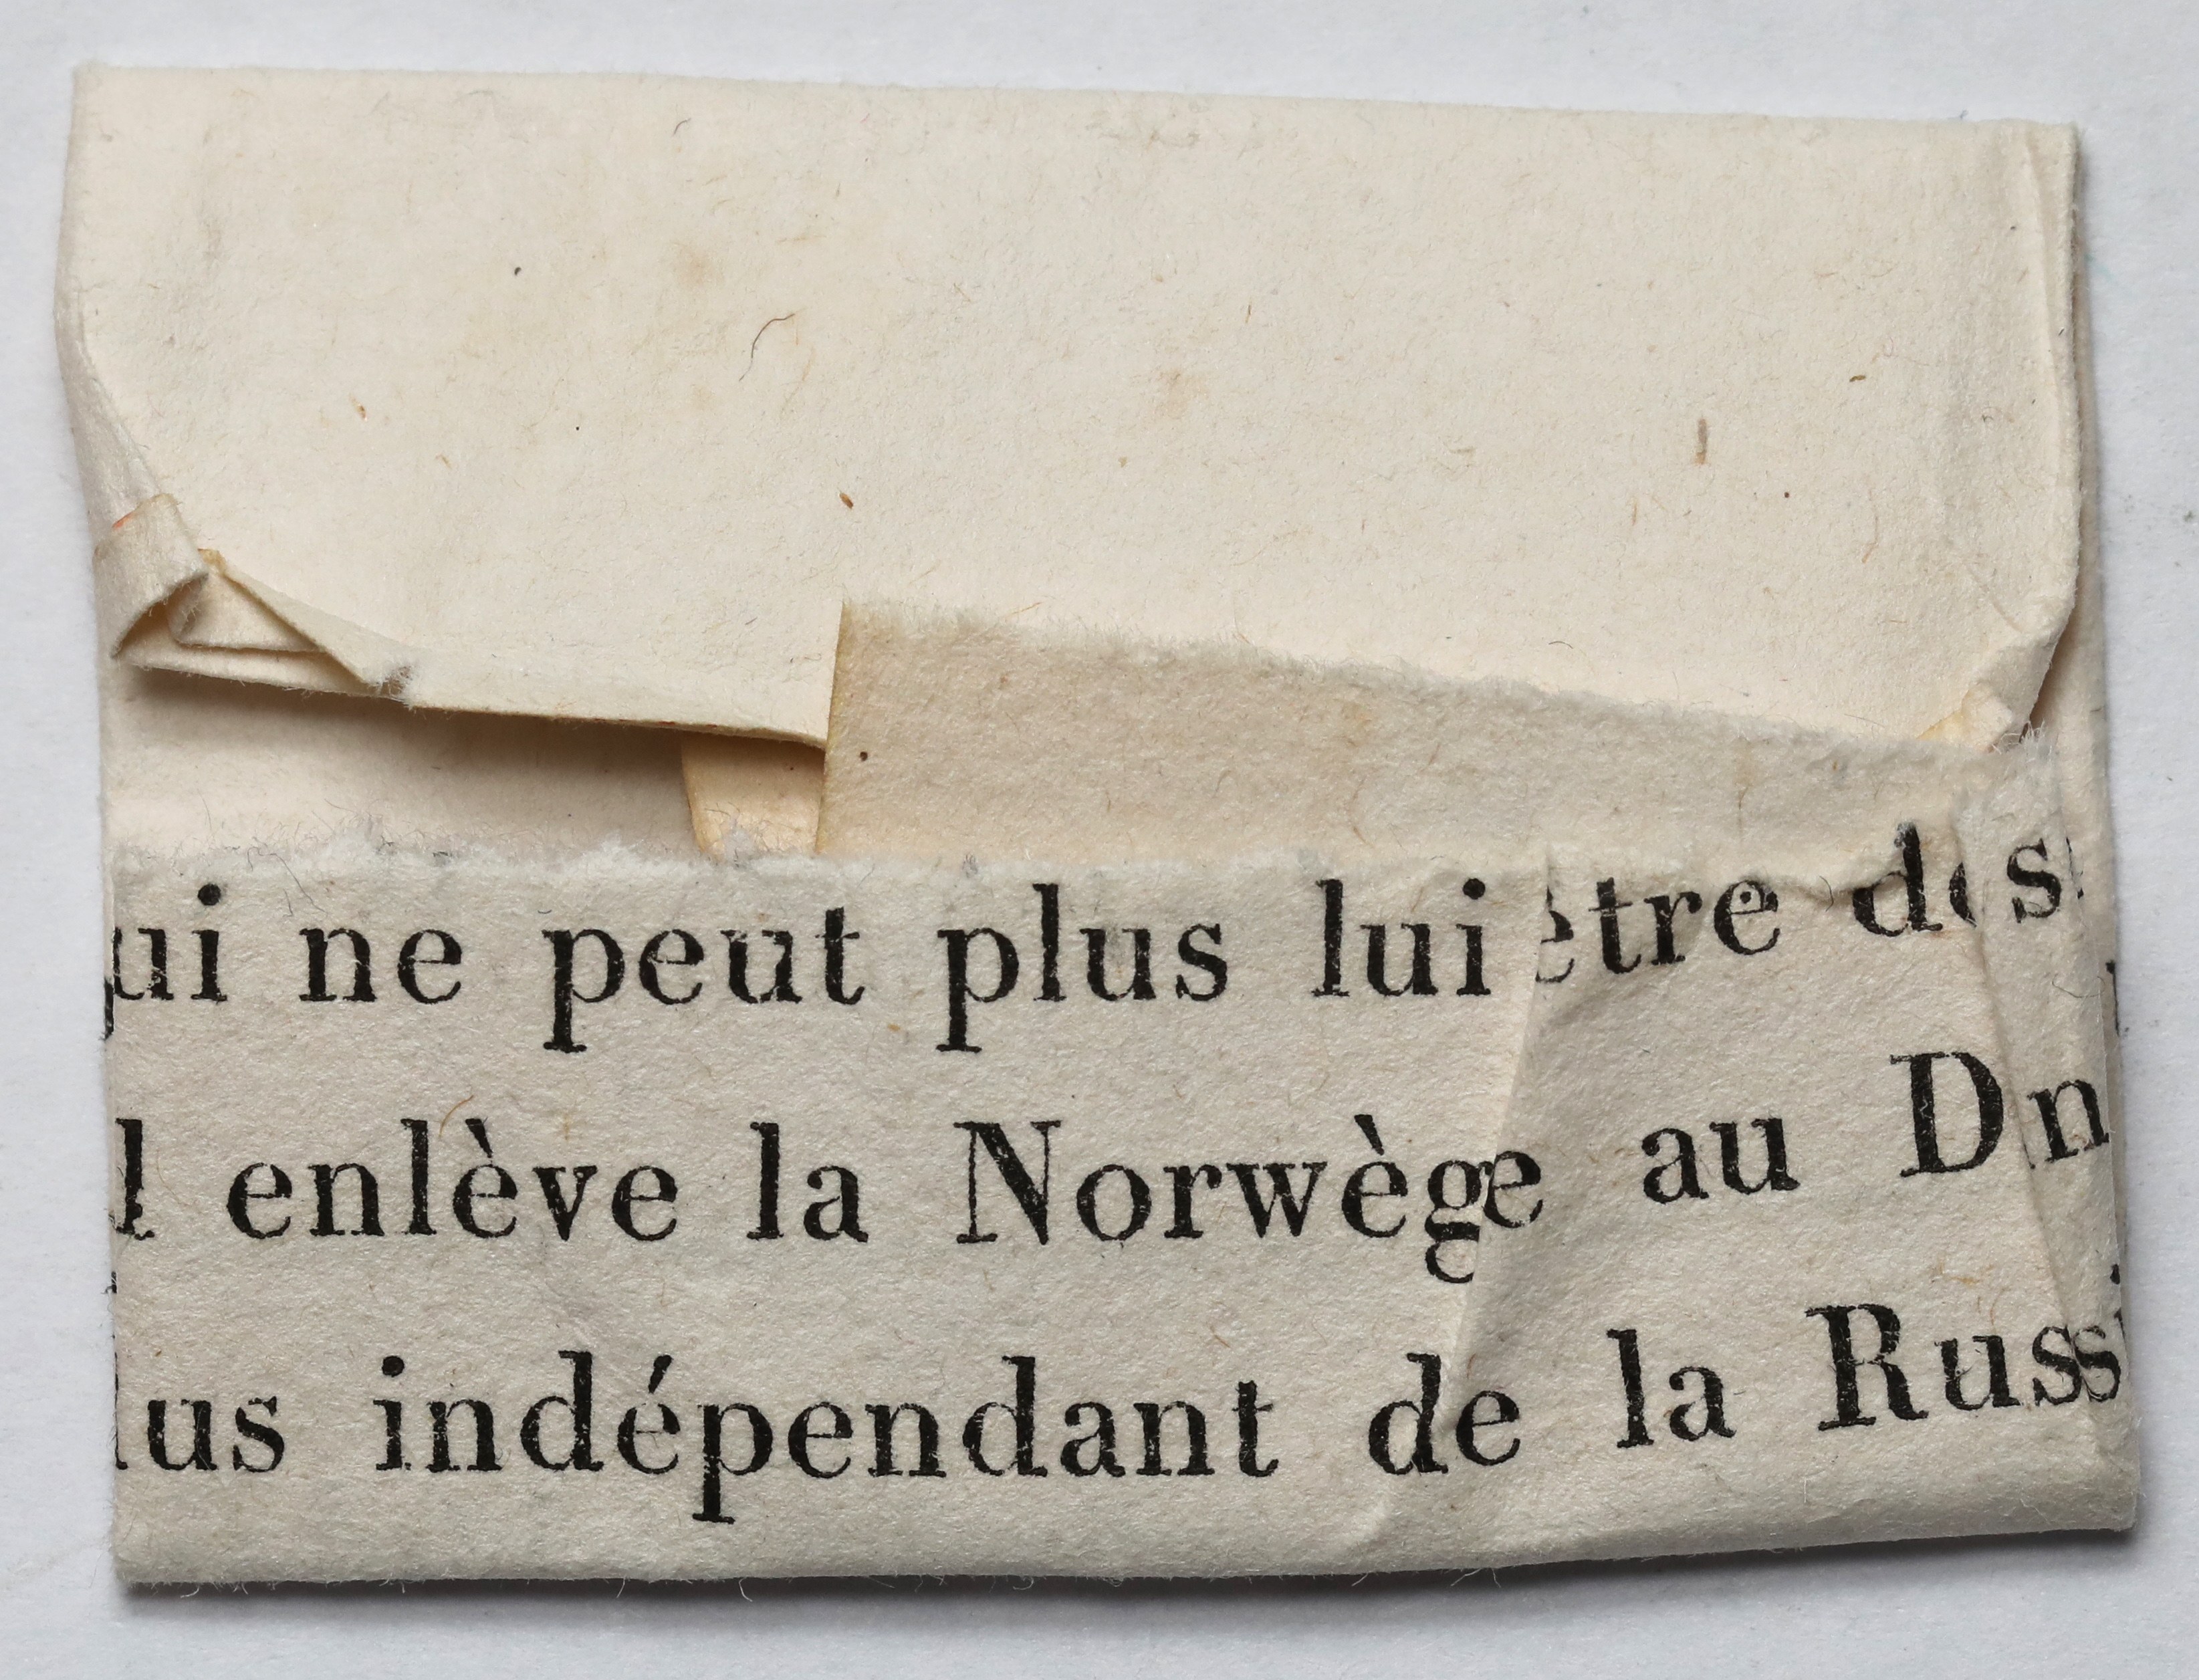 ui ne peut plus lui être des
l enlève la Norwège au Dn
lus indépendant de la Russi